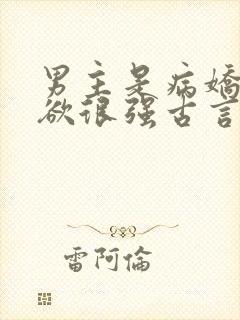 男主是病嬌
欲很强古言
雷阿倫